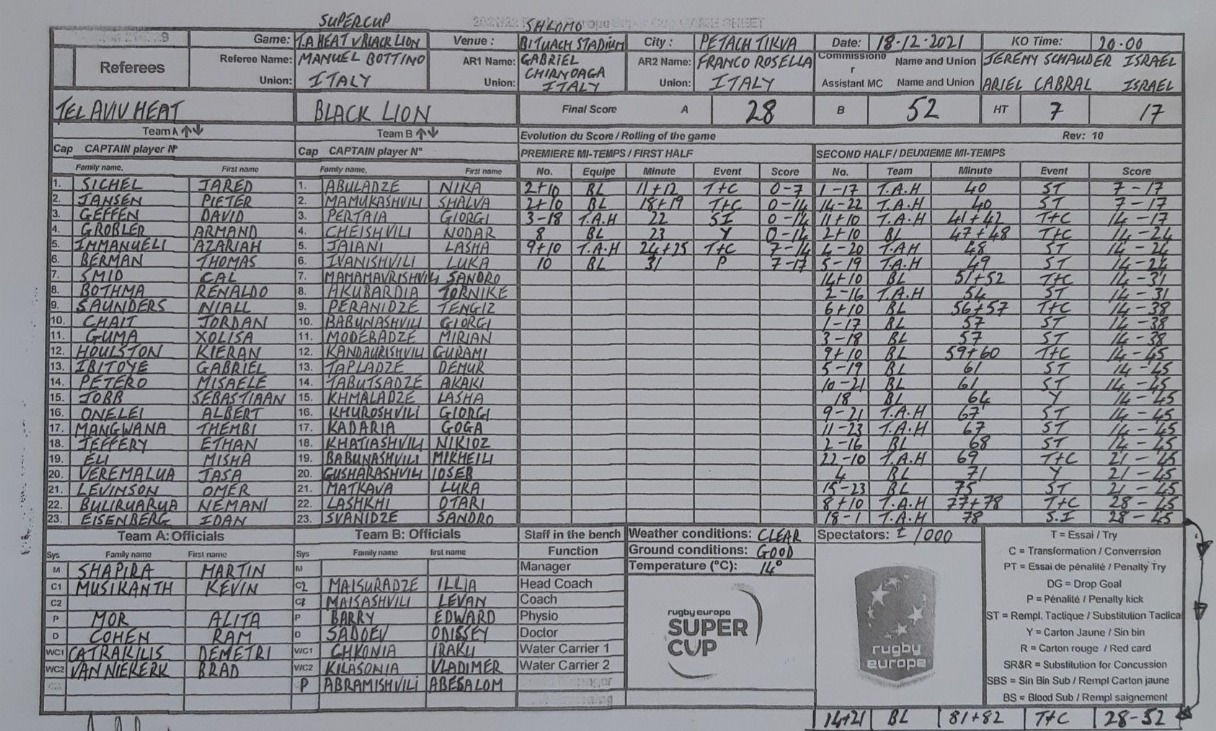 SUPERCUP SHLOMO
Game: T.A HEAT V BLACK LION Venue : BITUACH STADIUM City : PETACH TIKVA Date: 18-12-2021 KO Time: 20.00
Referees Referee Name: MANUEL BOTTINO AR1 Name: GABRIEL CHIRNOAGA AR2 Name: FRANCO ROSELLA Commissioner Name and Union JEREMY SCHAUDER ISRAEL
Union: ITALY Union: ITALY Union: ITALY Assistant MC Name and Union ARIEL CABRAL ISRAEL
TEL AVIV HEAT BLACK LION Final Score A 28 B 52 HT 7 17
Team A ↑↓ Team B ↑↓ Evolution du Score / Rolling of the game Rev: 10
Cap CAPTAIN player N° Cap CAPTAIN player N° PREMIERE MI-TEMPS / FIRST HALF SECOND HALF / DEUXIEME MI-TEMPS
Family name. First name Family name. First name No. Equipe Minute Event Score No. Team Minute Event Score
1. SICHEL JARED 1. ABULADZE NIKA 2+10 BL 11+12 T+C 0-7 1-17 T.A.H 40 ST 7-17
2. JANSEN PIETER 2. MAMUKASHVILI SHALVA 2+10 BL 18+19 T+C 0-14 14-22 T.A.H 40 ST 7-17
3. GEFFEN DAVID 3. PERTAIA GIORGI 3-18 T.A.H 22 SI 0-14 11+10 T.A.H 41+42 T+C 14-17
4. GROBLER ARMAND 4. CHEISHVILI NODAR 8 BL 23 Y 0-14 2+10 BL 47+48 T+C 14-24
5. IMMANUELI AZARIAH 5. JAIANI LASHA 9+10 T.A.H 24+25 T+C 7-14 4-20 T.AH 48 ST 14-24
6. BERMAN THOMAS 6. IVANISHVILI LUKA 10 BL 31 P 7-17 5-19 T.A.H 49 ST 14-24
7. SMID CAL 7. MAMAMAVRISHVILI SANDRO 14+10 BL 51+52 T+C 14-31
8. BOTHMA RENALDO 8. AKUBARDIA TORNIKE 2-16 T.A.H 54 ST 14-31
9. SAUNDERS NIALL 9. PERANIDZE TENGIZ 6+10 BL 56+57 T+C 14-38
10. CHAIT JORDAN 10. BABUNASHVILI GIORGI 1-17 BL 57 ST 14-38
11. GUMA XOLISA 11. MODEBADZE MIRIAN 3-18 BL 57 ST 14-38
12. HOULSTON KIERAN 12. KANDAURISHVILI GURAMI 9+10 BL 59+60 T+C 14-45
13. IBITOYE GABRIEL 13. TAPLADZE DEMUR 5-19 BL 61 ST 14-45
14. PETERO MISAELE 14. TABUTSADZE AKAKI 10-21 BL 61 ST 14-45
15. JOBB SEBASTIAAN 15. KHMALADZE LASHA 18 BL 64 Y 14-45
16. ONELEI ALBERT 16. KHUROSHVILI GIORGI 9-21 T.A.H 67 ST 14-45
17. MANGWANA THEMBI 17. KADARIA GOGA 11-23 T.A.H 67 ST 14-45
18. JEFFERY ETHAN 18. KHATIASHVILI NIKIOZ 2-16 BL 68 ST 14-45
19. ELI MISHA 19. BABUNASHVILI MIKHEILI 22-10 T.A.H 69 T+C 21-45
20. VEREMALUA JASA 20. GUSHARASHVILI IOSEB 4 BL 71 Y 21-45
21. LEVINSON OMER 21. MATKAVA LUKA 15-23 BL 75 ST 21-45
22. BULIRUARUA NEMANI 22. LASHKHI OTARI 8+10 T.A.H 77+78 T+C 28-45
23. EISENBERG IDAN 23. SVANIDZE SANDRO 18-1 T.A.H 78 S.I 28-45
Team A: Officials Team B: Officials Staff in the bench Weather conditions: CLEAR Spectators: ± 1000 T = Essai / Try
Sys Family name First name Sys Family name first name Function Ground conditions: GOOD C = Transformation / Converrsion
M SHAPIRA MARTIN M Manager Temperature (°C): 14° PT = Essai de pénalité / Penalty Try
C1 MUSIKANTH KEVIN C2 MAISURADZE ILLIA Head Coach DG = Drop Goal
C2 MAISASHVILI LEVAN Coach P = Pénalité / Penalty kick
P MOR ALITA P BARRY EDWARD Physio ST = Rempl. Tactique / Substitution Tactica
D COHEN RAM D SADOEV ODISSEY Doctor Y = Carton Jaune / Sin bin
WC1 CATRAKILIS DEMETRI WC1 CHKONIA IRAKLI Water Carrier 1 R = Carton rouge / Red card
WC2 VAN NIEKERK BRAD WC2 KILASONIA VLADIMER Water Carrier 2 SR&R = Substitution for Concussion
P ABRAMISHVILI ABESALOM SBS = Sin Bin Sub / Rempl Carton jaune
BS = Blood Sub / Rempl saignement
rugby europe
SUPER
CUP
rugby
europe
14+21 BL 81+82 T+C 28-52